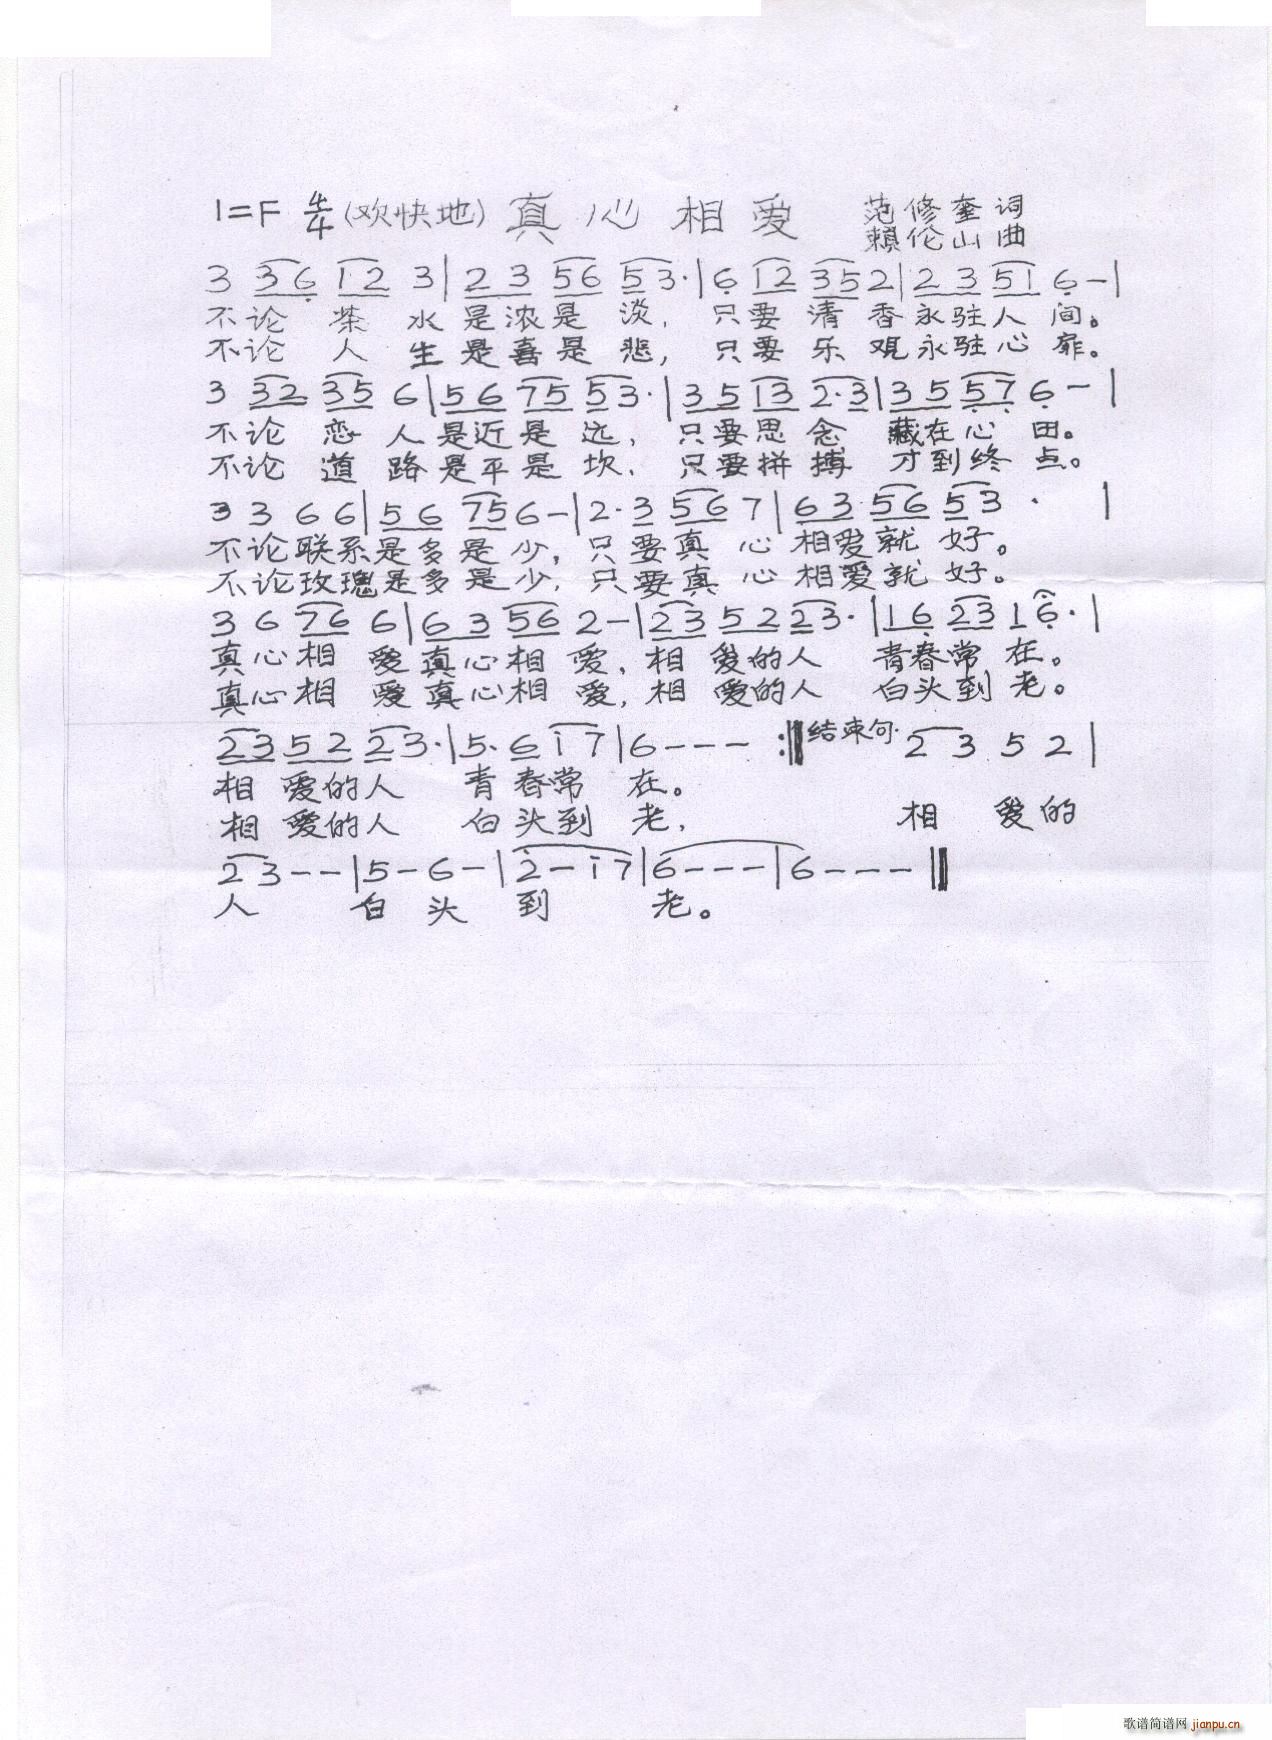 1=F 4/4 (欢快地) 真心相爱 范修奎 词
赖伦山 曲
3 36 12 3 | 2 3 56 53· | 6 12 35 2 | 2 3 51 6 - |
不论 茶 水 是浓是 淡, 只要 清 香 永驻人 间。
不论 人 生 是喜是 悲, 只要 乐 观 永驻心 扉。
3 32 35 6 | 56 75 53· | 35 13 2·3 | 35 57 6 - |
不论 恋 人 是近是 远, 只要思 念 藏在心 田。
不论 道 路 是平是 坎, 只要拼 搏 才到终 点。
3 3 6 6 | 56 75 6 - | 2·3 56 7 | 63 56 53 · |
不论联系是多是少, 只要真 心 相爱就 好。
不论玫瑰是多是少, 只要真 心 相爱就 好。
3 6 76 6 | 63 56 2 - | 23 52 23· | 16 23 1 6· |
真心相 爱真心相 爱, 相 爱的人 青春常 在。
真心相 爱真心相 爱, 相 爱的人 白头到 老。
23 52 23· | 5· 6 i 7 | 6 - - - :‖ 结束句 2 3 5 2 |
相 爱的人 青 春常 在。
相 爱的人 白 头到 老, 相 爱的
2 3 - - | 5 - 6 - | 2 - i 7 | 6 - - - | 6 - - - ‖
人 白 头 到 老。
歌谱简谱网 jianpu.cn